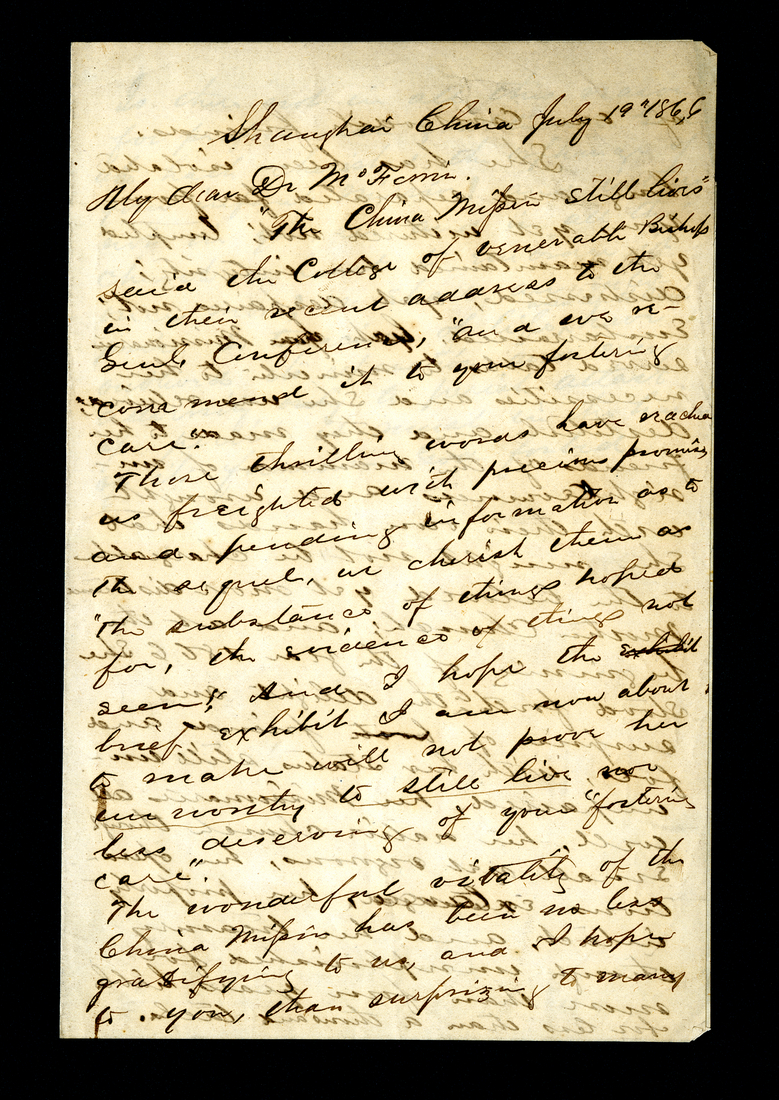 Shanghai China July 19" 1866
My dear Dr McFerrin.
"The China Mission still lives"
said the College of venerable Bishops
in their recent address to the
Genl Conference, "and we re-
commend it to your fostering
care."
Those thrilling words have reached
us freighted with precious promise
and pending information as to
the sequel, we cherish them as
"the substance of things hoped
for, the evidence of things not
seen;" And I hope the exhibit
brief exhibit I am now about
to make will not prove her
unworthy to still live nor
less deserving of your "fostering
care".
The wonderful vitality of the
China Mission has been no less
gratifying to us, and I hope
to you, than surprizing to many